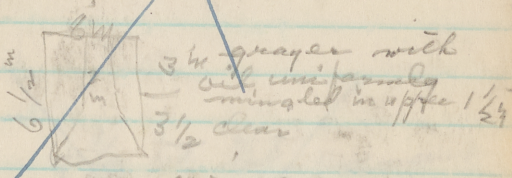 6 in
6 1/2 in
3 in grayer with
oil uniformly
mingled in upper 1 1/2
3 1/2 clear